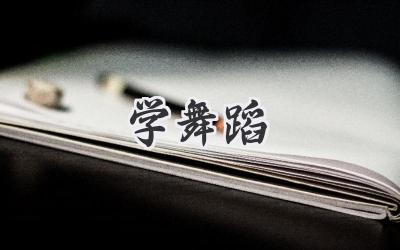 学舞蹈